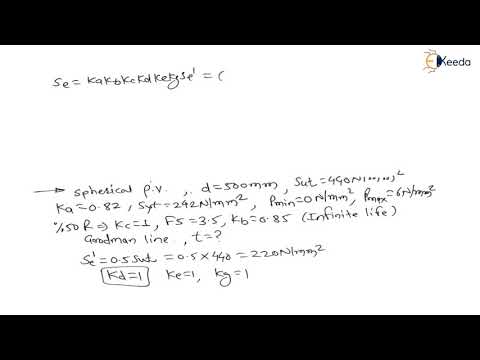 EKeeda
Se = KaKbKcKdKeKgSe' = (
→ spherical p.v. , d=500mm , Sut=440N/mm²
Ka=0.82, Syt=242N/mm², Pmin=0N/mm², Pmax=6N/mm²
%50 R ⇒ Kc=1 , FS=3.5, Kb=0.85 (Infinite life)
Goodman line , t=?
Se'=0.5Sut = 0.5×440 =220N/mm²
Kd=1 Ke=1, Kg=1